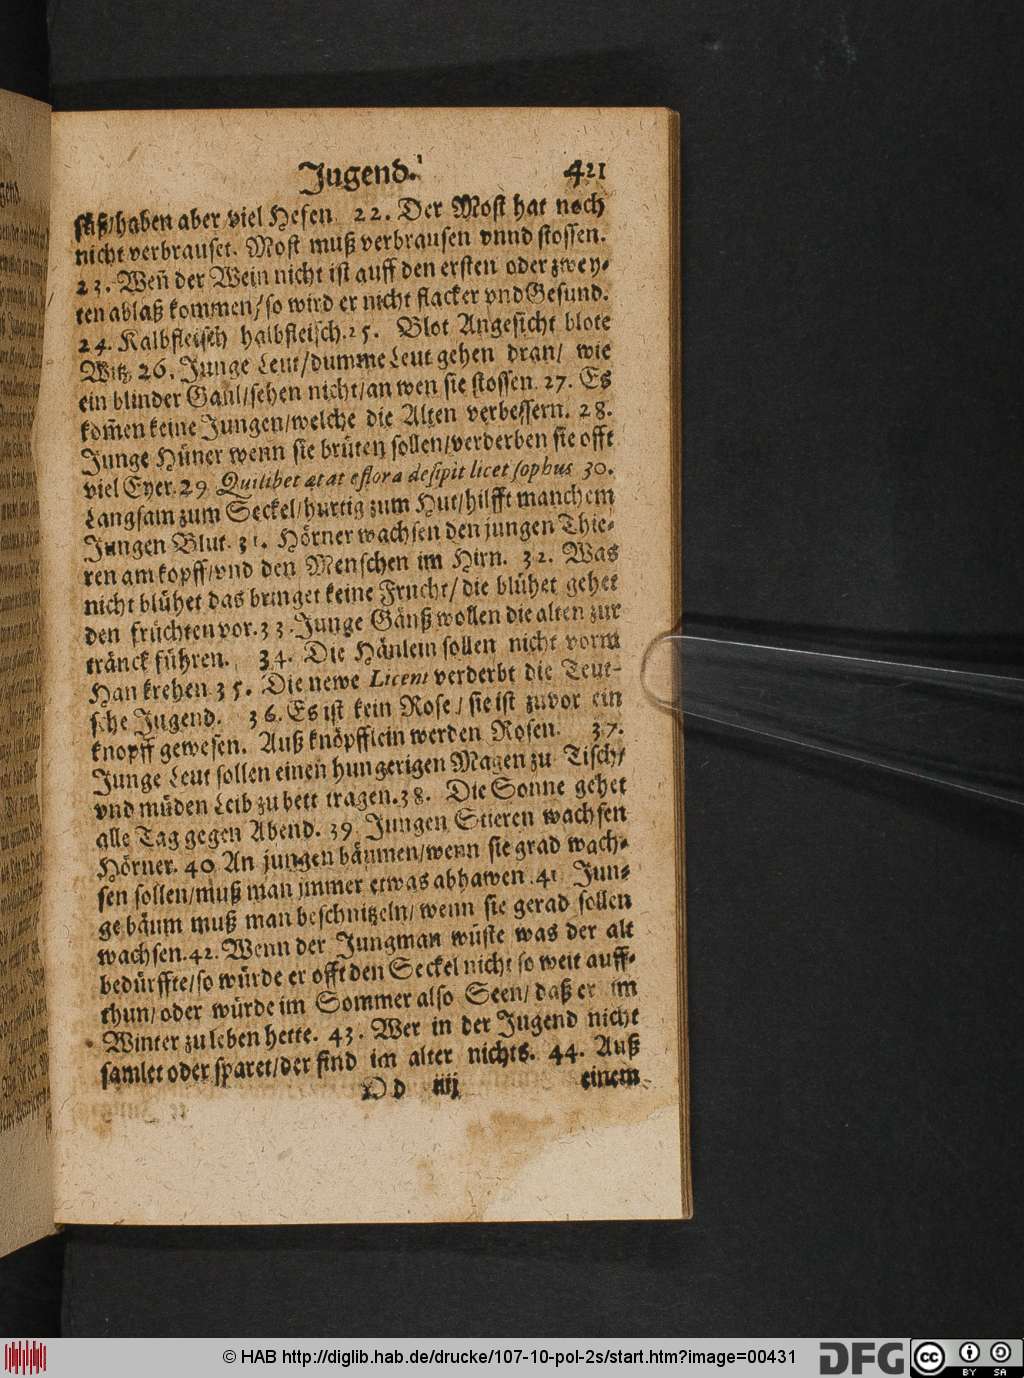 Jugend. 421
süß/haben aber viel Hefen 22. Der Most hat noch
nicht verbrauset. Most muß verbrausen vnnd stossen.
23. Weñ der Wein nicht ist auff den ersten oder zwey-
ten ablaß kommen/so wird er nicht flacker vnd Gesund.
24. Kalbfleisch halbfleisch. 25. Blot Angesicht blote
Witz 26. Junge Leut/dumme Leut gehen dran/ wie
ein blinder Gaul/sehen nicht/an wen sie stossen. 27. Es
kom̃en keine Jungen/welche die Alten verbessern. 28.
Junge Hüner wenn sie brüten sollen/verderben sie offt
viel Eyer. 29 Quilibet ætat e flora desipit licet sophus 30.
Langsam zum Seckel/hurtig zum Hut/hilfft manchem
Jungen Blut. 31. Hörner wachsen den jungen Thie-
ren am kopff/vnd den Menschen im Hirn. 32. Was
nicht blühet das bringet keine Frucht/ die blühet gehet
den früchten vor. 33. Junge Gänß wollen die alten zur
tränck führen. 34. Die Hänlein sollen nicht vorm
Han krehen 35. Die newe Licent verderbt die Teut-
sche Jugend. 36. Es ist kein Rose/ sie ist zuvor ein
knopff gewesen. Auß knöpfflein werden Rosen. 37.
Junge Leut sollen einen hungerigen Magen zu Tisch/
vnd müden Leib zu bett tragen. 38. Die Sonne gehet
alle Tag gegen Abend. 39 Jungen Stieren wachsen
Hörner. 40 An jungen bäumen/wenn sie grad wach-
sen sollen/muß man jmmer etwas abhawen. 41 Jun-
ge bäum muß man beschnitzeln/ wenn sie gerad sollen
wachsen. 42. Wenn der Jungman wüste was der alt
bedürffte/so würde er offt den Seckel nicht so weit auff-
thun/oder würde im Sommer also Seen/ daß er im
Winter zu leben hette. 43. Wer in der Jugend nicht
samlet oder sparet/der find im alter nichts. 44. Auß
Dd iiij einem
© HAB http://diglib.hab.de/drucke/107-10-pol-2s/start.htm?image=00431
DFG cc BY SA